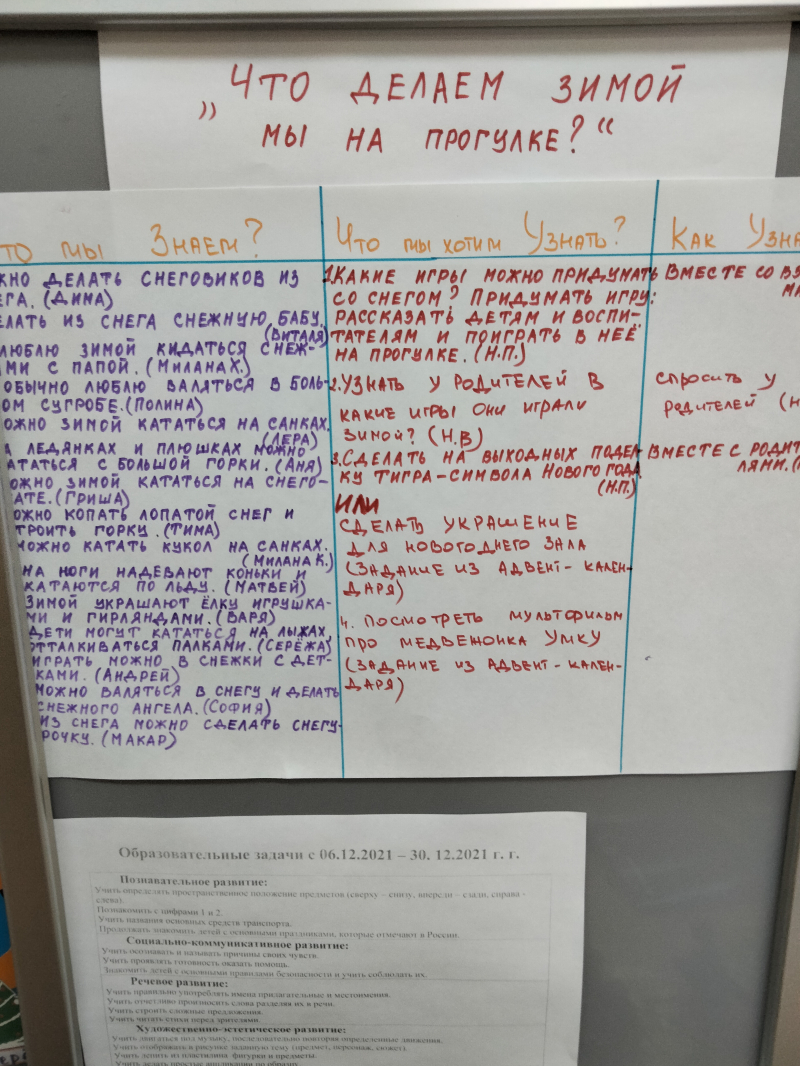 „ЧТО ДЕЛАЕМ ЗИМОЙ
МЫ НА ПРОГУЛКЕ?“
ТО МЫ ЗНАЕМ?
ЖНО ДЕЛАТЬ СНЕГОВИКОВ ИЗ
ЕГА. (ДИМА)
ЕЛАТЬ ИЗ СНЕГА СНЕЖНУЮ БАБУ.
(ВИТАЛЯ)
ЛЮБЛЮ ЗИМОЙ КИДАТЬСЯ СНЕЖ-
АМИ С ПАПОЙ. (МИЛАНА Х.)
ОБЫЧНО ЛЮБЛЮ ВАЛЯТЬСЯ В БОЛЬ-
ОМ СУГРОБЕ. (ПОЛИНА)
ОЖНО ЗИМОЙ КАТАТЬСЯ НА САНКАХ.
(ЛЕРА)
А ЛЕДЯНКАХ И ПЛЮШКАХ МОЖНО
АТАТЬСЯ С БОЛЬШОЙ ГОРКИ. (АНЯ)
ОЖНО ЗИМОЙ КАТАТЬСЯ НА СНЕГО-
АТЕ. (ГРИША)
ОЖНО КОПАТЬ ЛОПАТОЙ СНЕГ И
ТРОИТЬ ГОРКУ. (ТИМА)
МОЖНО КАТАТЬ КУКОЛ НА САНКАХ.
(МИЛАНА К.)
НА НОГИ НАДЕВАЮТ КОНЬКИ И
КАТАЮТСЯ ПО ЛЬДУ. (МАТВЕЙ)
ЗИМОЙ УКРАШАЮТ ЁЛКУ ИГРУШКА-
МИ И ГИРЛЯНДАМИ. (ВАРЯ)
ДЕТИ МОГУТ КАТАТЬСЯ НА ЛЫЖАХ,
ОТТАЛКИВАТЬСЯ ПАЛКАМИ. (СЕРЁЖА)
ИГРАТЬ МОЖНО В СНЕЖКИ С ДЕТ-
КАМИ. (АНДРЕЙ)
МОЖНО ВАЛЯТЬСЯ В СНЕГУ И ДЕЛАТЬ
СНЕЖНОГО АНГЕЛА. (СОФИЯ)
ИЗ СНЕГА МОЖНО СДЕЛАТЬ СНЕГУ-
РОЧКУ. (МАКАР)
ЧТО МЫ ХОТИМ УЗНАТЬ?
1. КАКИЕ ИГРЫ МОЖНО ПРИДУМАТЬ
СО СНЕГОМ? ПРИДУМАТЬ ИГРУ:
РАССКАЗАТЬ ДЕТЯМ И ВОСПИ-
ТАТЕЛЯМ И ПОИГРАТЬ В НЕЁ
НА ПРОГУЛКЕ. (Н.П.)
2. УЗНАТЬ У РОДИТЕЛЕЙ В
КАКИЕ ИГРЫ ОНИ ИГРАЛИ
ЗИМОЙ? (Н.В)
3. СДЕЛАТЬ НА ВЫХОДНЫХ ПОДЕЛ-
КУ ТИГРА-СИМВОЛА НОВОГО ГОДА.
(Н.П.)
ИЛИ
СДЕЛАТЬ УКРАШЕНИЕ
ДЛЯ НОВОГОДНЕГО ЗАЛА
(ЗАДАНИЕ ИЗ АДВЕНТ-КАЛЕН-
ДАРЯ)
4. ПОСМОТРЕТЬ МУЛЬТФИЛЬМ
ПРО МЕДВЕЖОНКА УМКУ
(ЗАДАНИЕ ИЗ АДВЕНТ-КАЛЕН-
ДАРЯ)
КАК УЗНА
ВМЕСТЕ СО ВЗ
СПРОСИТЬ У
РОДИТЕЛЕЙ (Н
ВМЕСТЕ С РОДИТ
ЛЯМИ.
Образовательные задачи с 06.12.2021 – 30. 12.2021 г. г.
Познавательное развитие:
Учить определять пространственное положение предметов (сверху – снизу, впереди – сзади, справа -
слева).
Познакомить с цифрами 1 и 2.
Учить названия основных средств транспорта.
Продолжать знакомить детей с основными праздниками, которые отмечают в России.
Социально-коммуникативное развитие:
Учить осознавать и называть причины своих чувств.
Учить проявлять готовность оказать помощь.
Знакомить детей с основными правилами безопасности и учить соблюдать их.
Речевое развитие:
Учить правильно употреблять имена прилагательные и местоимения.
Учить отчетливо произносить слова разделяя их в речи.
Учить строить сложные предложения.
Учить читать стихи перед зрителями.
Художественно-эстетическое развитие:
Учить двигаться под музыку, последовательно повторяя определенные движения.
Учить отображать в рисунке заданную тему (предмет, персонаж, сюжет).
Учить лепить из пластилина фигурки и предметы.
Учить делать простые аппликации по образцу.